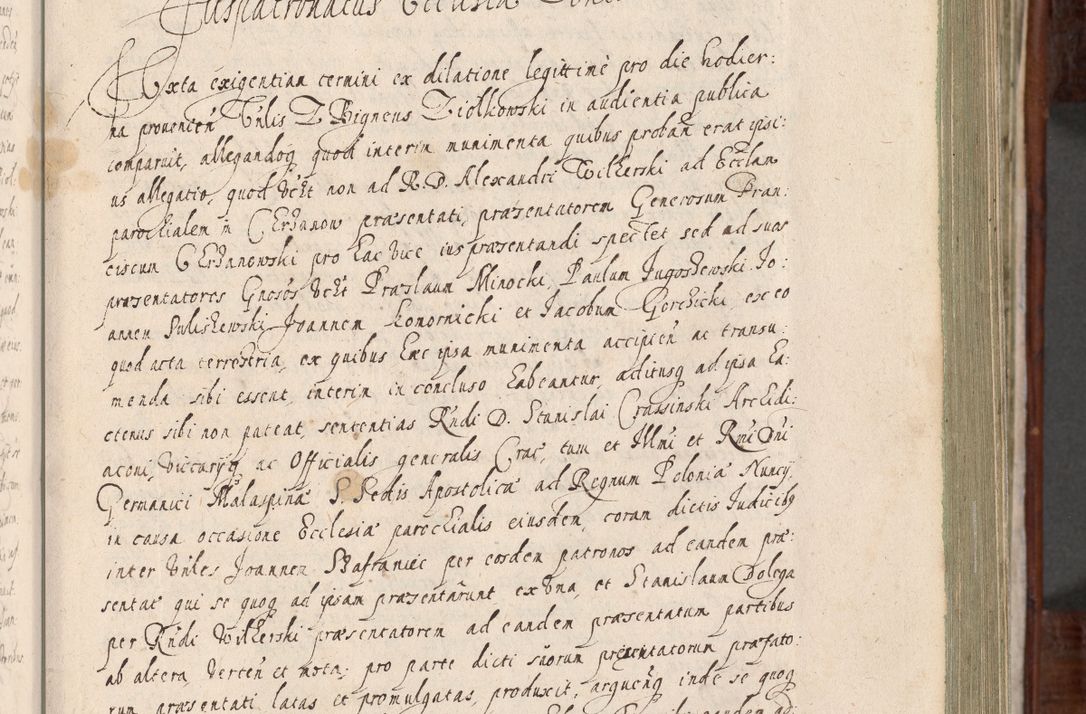 Juspatronatus Ecclesiæ
Iuxta exigentiam termini ex dilatione legittimè pro die hodier:
na prouenien̄ Vn̄lis Zbigneus Ziołkowski in audientia publica
comparuit, allegandoq quod interim munimenta quibus proban̄ erat ipsi:
us allegatio, quod vc̄lt non ad R. D. Alexandri Wilkerski ad Eccl̄am
parochialem in Cerzanow præsentati, præsentatorem Generosum Fran:
ciscum Cerzanowski pro hac vice ius præsentandi spectet sed ad suos
præsentatores Gn̄osos vc̄lt Præzlaum Minocki, Paulum Jugoszewski Jo:
annem Suliszewski Joannem Komornicki et Jacobum Gorchicki, ex eo
quod acta terrestria, ex quibus hæc ipsa munimenta accipien̄ ac transu:
menda sibi essent, interim in concluso habeantur, aditusq ad ipsa ha:
ctenus sibi non pateat, sententias Rn̄di D. Stanislai Crassinski Archidi:
aconi, Viccarijq ac Officialis generalis Crac̄, tum et Illm̄i et Rm̄i Dn̄i
Germanici Malaspinæ S. Sedis Apostolicæ ad Regnum Poloniæ Nuncij,
in causa occasione Ecclesiæ parochialis eiusdem, coram dictis Judicibq
inter Vn̄les Joannem Szafraniec per eosdem patronos ad eandem præ:
sentat̄ qui se quoq ad ipsam præsentārunt ex vna, et Stanislaum Dolega
per Rn̄di Wilkerski præsentatorem ad eandem præsentatum partibus
ab altera, verten̄ et mota; pro parte dicti suōrum præsentatorum præfato:
rum præsentati latas et promulgatas, produxit, arguen̄q inde se quoq